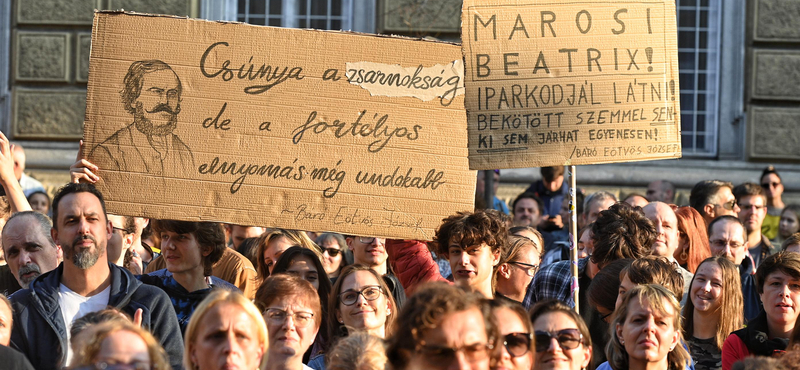 Csúnya a zsarnokság
de a fortélyos
elnyomás még undokabb
~ Báró Eötvös József
MAROSI
BEATRIX!
IPARKODJÁL LÁTNI!
BEKÖTÖTT SZEMMEL SEN-
KI SEM JÁRHAT EGYENESEN!
/BÁRÓ EÖTVÖS JÓZSEF/